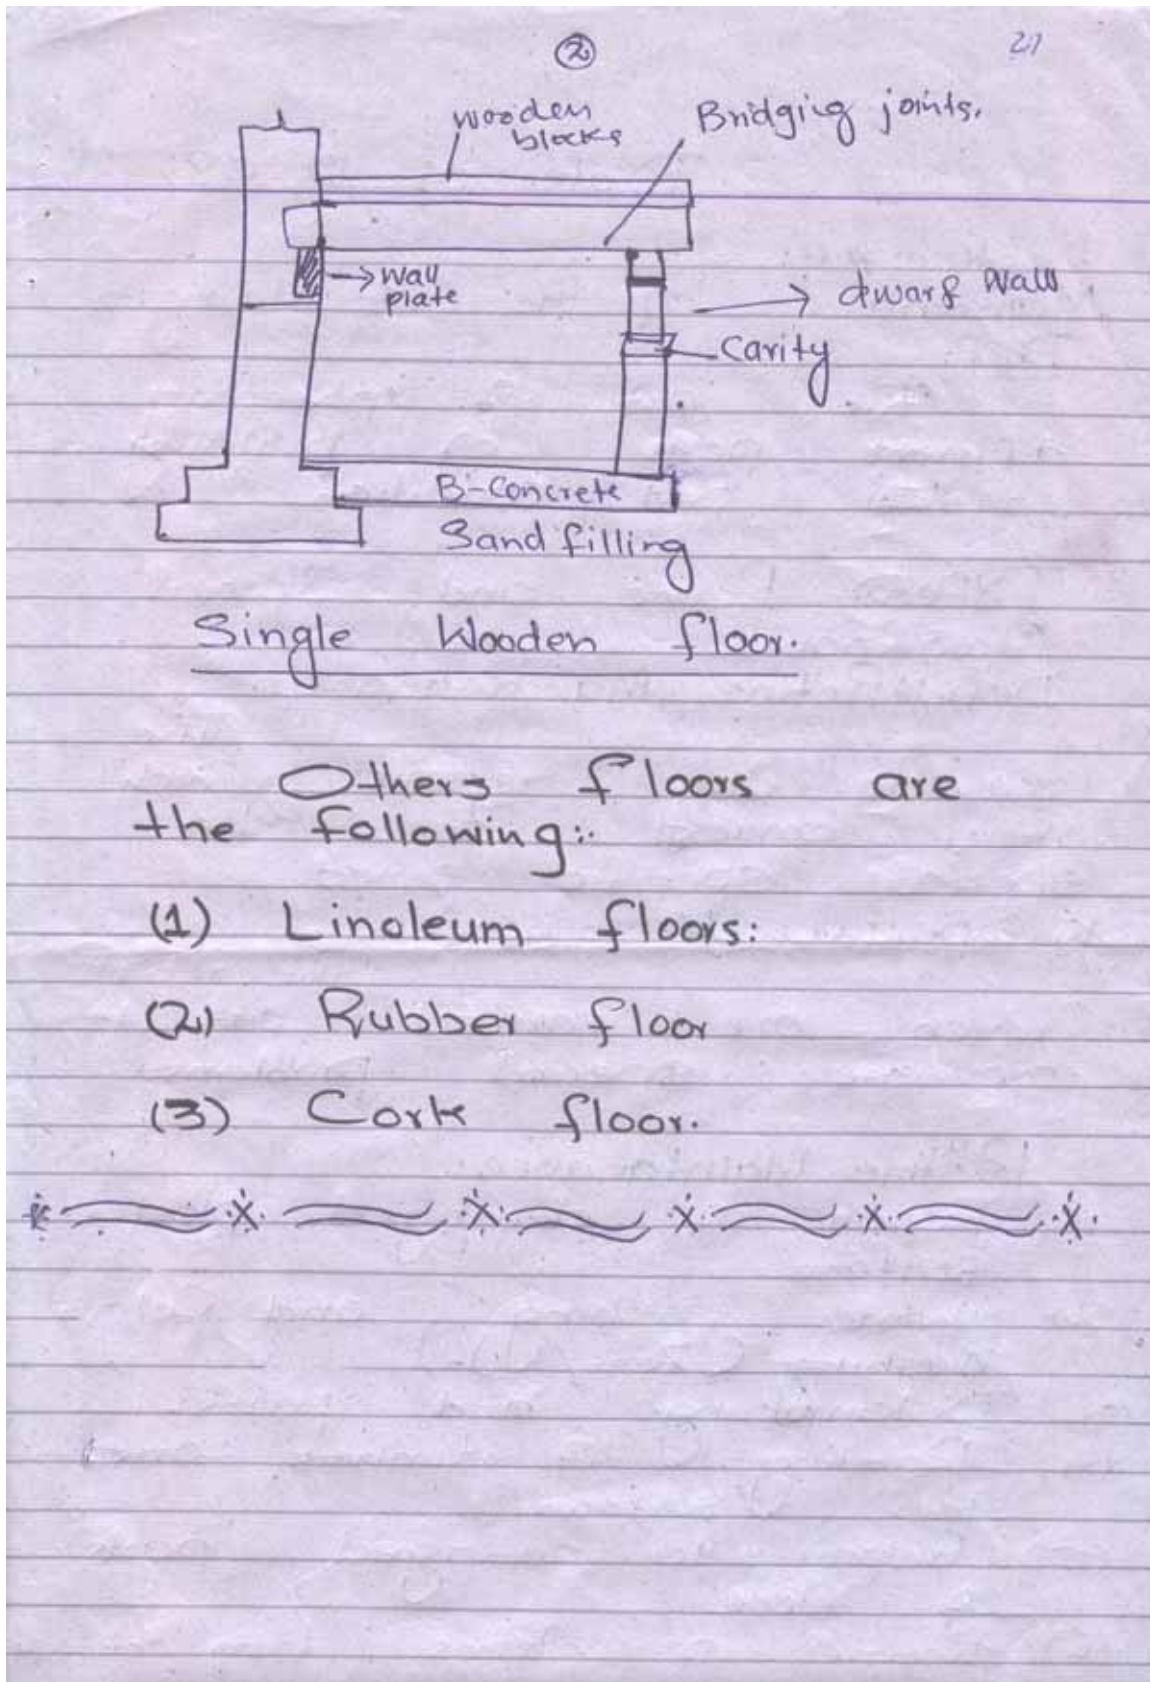 2
21
wooden
blocks
Bridging joints.
wall
plate
dwarf wall
Cavity
B-Concrete
Sand filling
Single Wooden floor.
Others floors are
the following:-
(1) Linoleum floors:
(2) Rubber floor
(3) Cork floor.